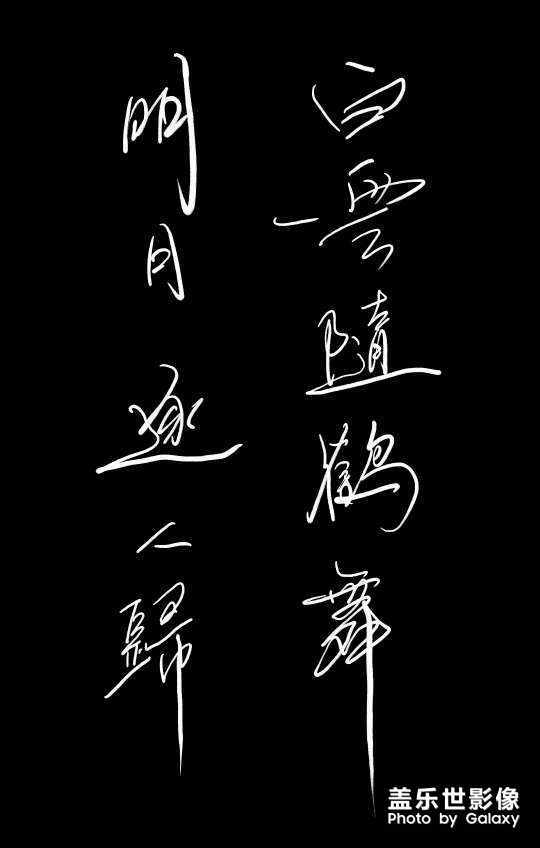 白雲隨鶴舞
明月逐人歸
盖乐世影像
Photo by Galaxy